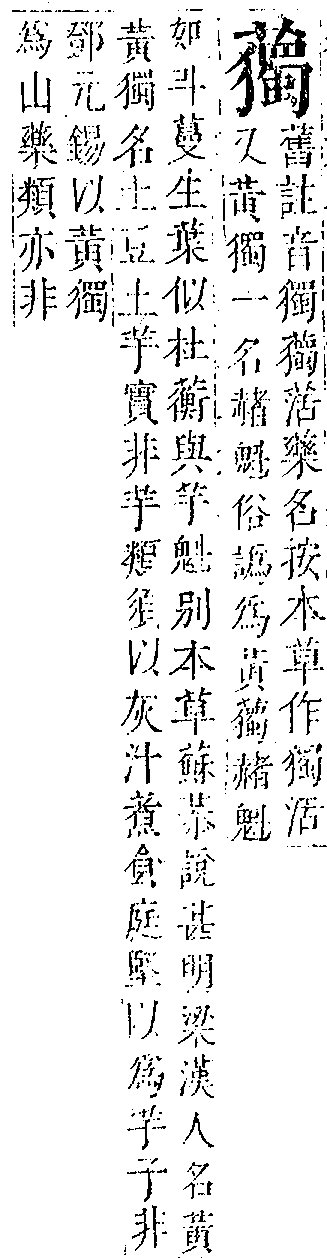 舊註音獨活藥名按本草作獨活
又黃獨一名赭魁俗譌爲黃赭魁
如斗蔓生葉似杜蘅與芋魁別本草蘇恭說甚明梁漢人名黃
黃獨名土豆土芋實非芋類須以灰汁煮食庭堅以爲芋子非
鄧元錫以黃獨
爲山藥類亦非